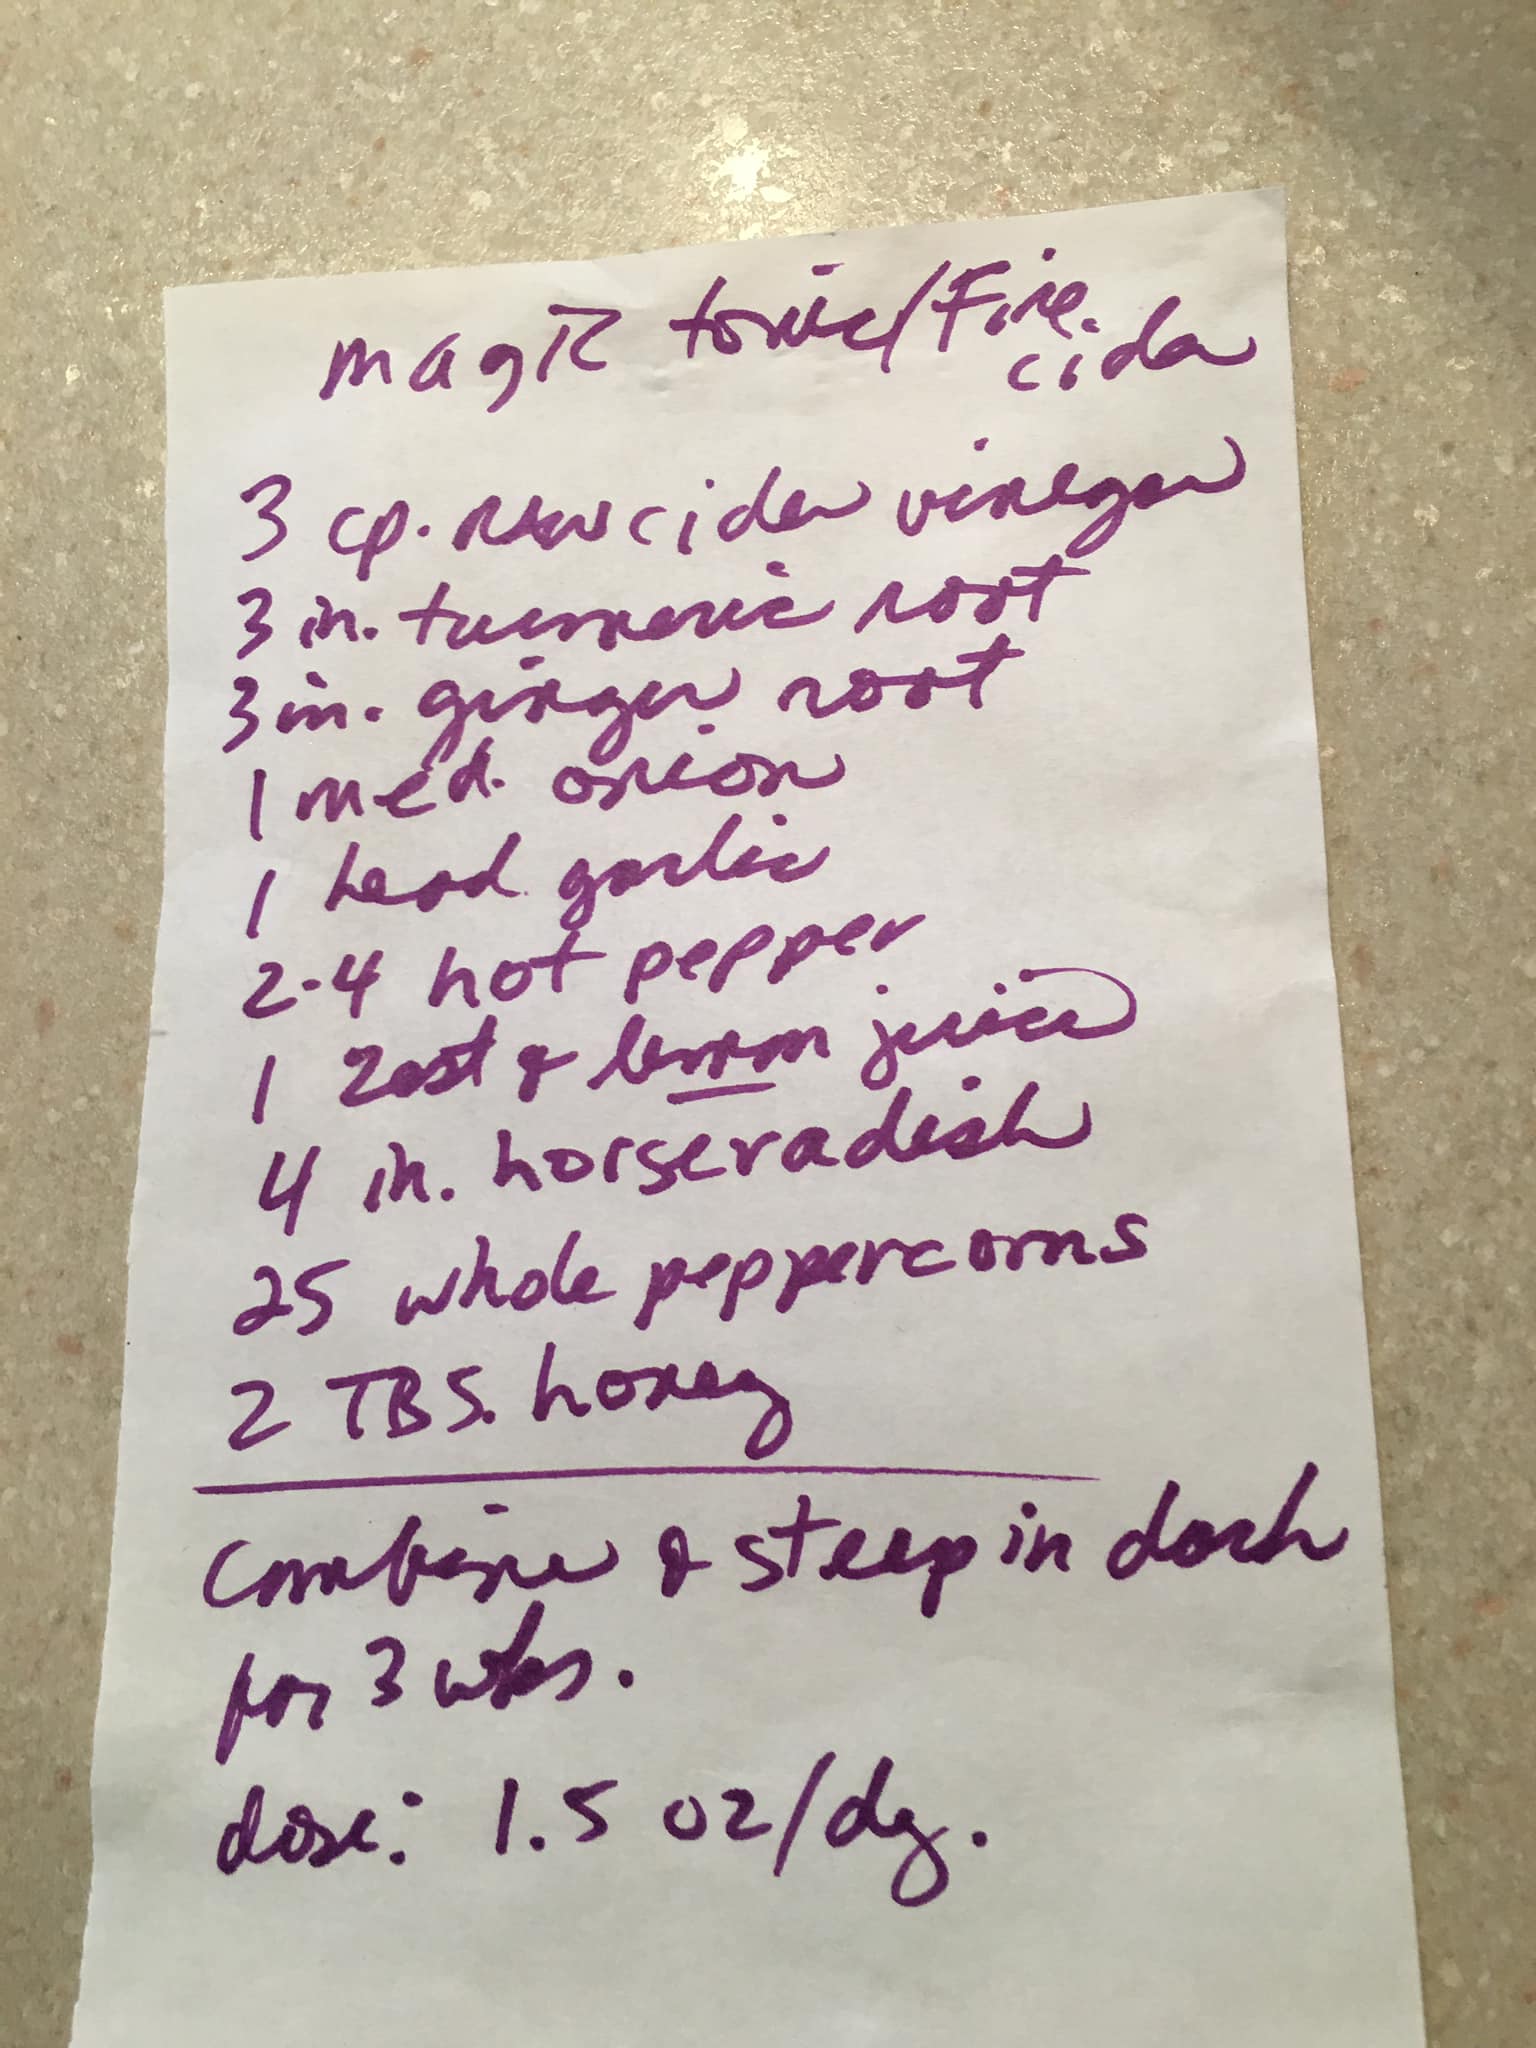 magic tonic/Fire
cider
3 cp. raw cider vinegar
3 in. turmeric root
3 in. ginger root
1 med. onion
1 head garlic
2-4 hot pepper
1 zest & lemon juice
4 in. horseradish
25 whole peppercorns
2 TBS. honey
Combine & steep in dark
for 3 wks.
dose: 1.5 oz/dy.